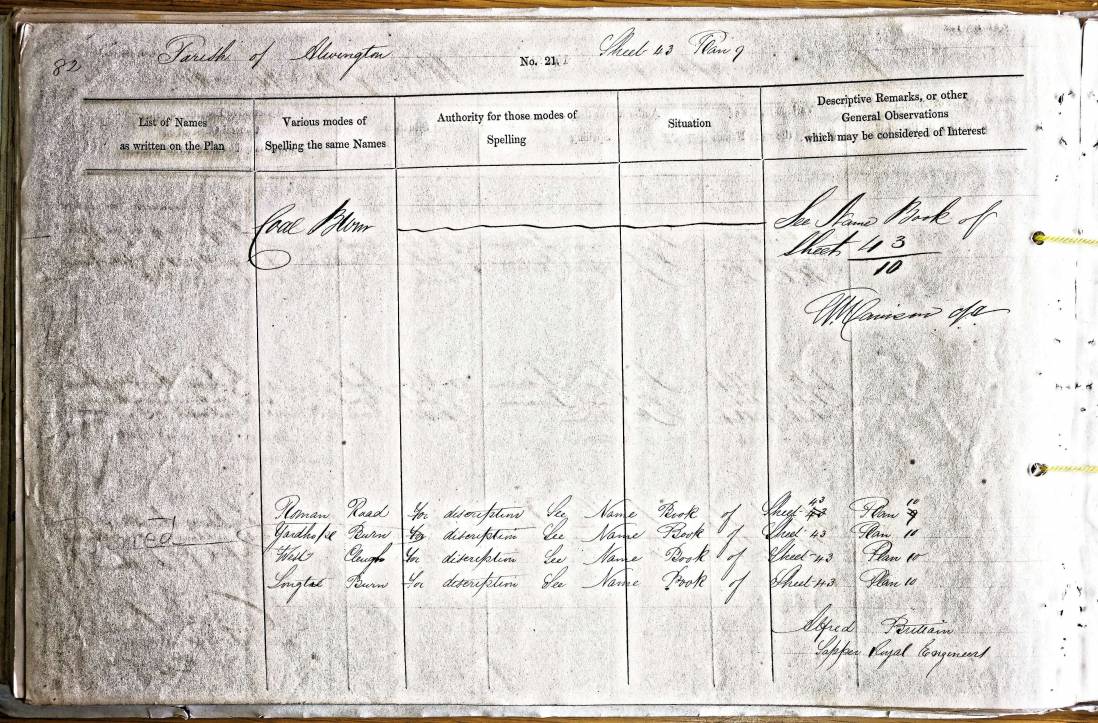 82 Parish of Alwington No. 21. Sheet 43 Plan 9
List of Names
as written on the Plan
Various modes of
Spelling the same Names
Authority for those modes of
Spelling
Situation
Descriptive Remarks, or other
General Observations
which may be considered of Interest
Coal Burn See Name Book of
Sheet 43
10
Roman Road For discription See Name Book of Sheet 43 Plan 10
Yardhope Burn For discription See Name Book of Sheet 43 Plan 10
West Cleugh For discription See Name Book of Sheet 43 Plan 10
Longtae Burn For discription See Name Book of Sheet 43 Plan 10
Alfred Brittain
Sapper Royal Engineers